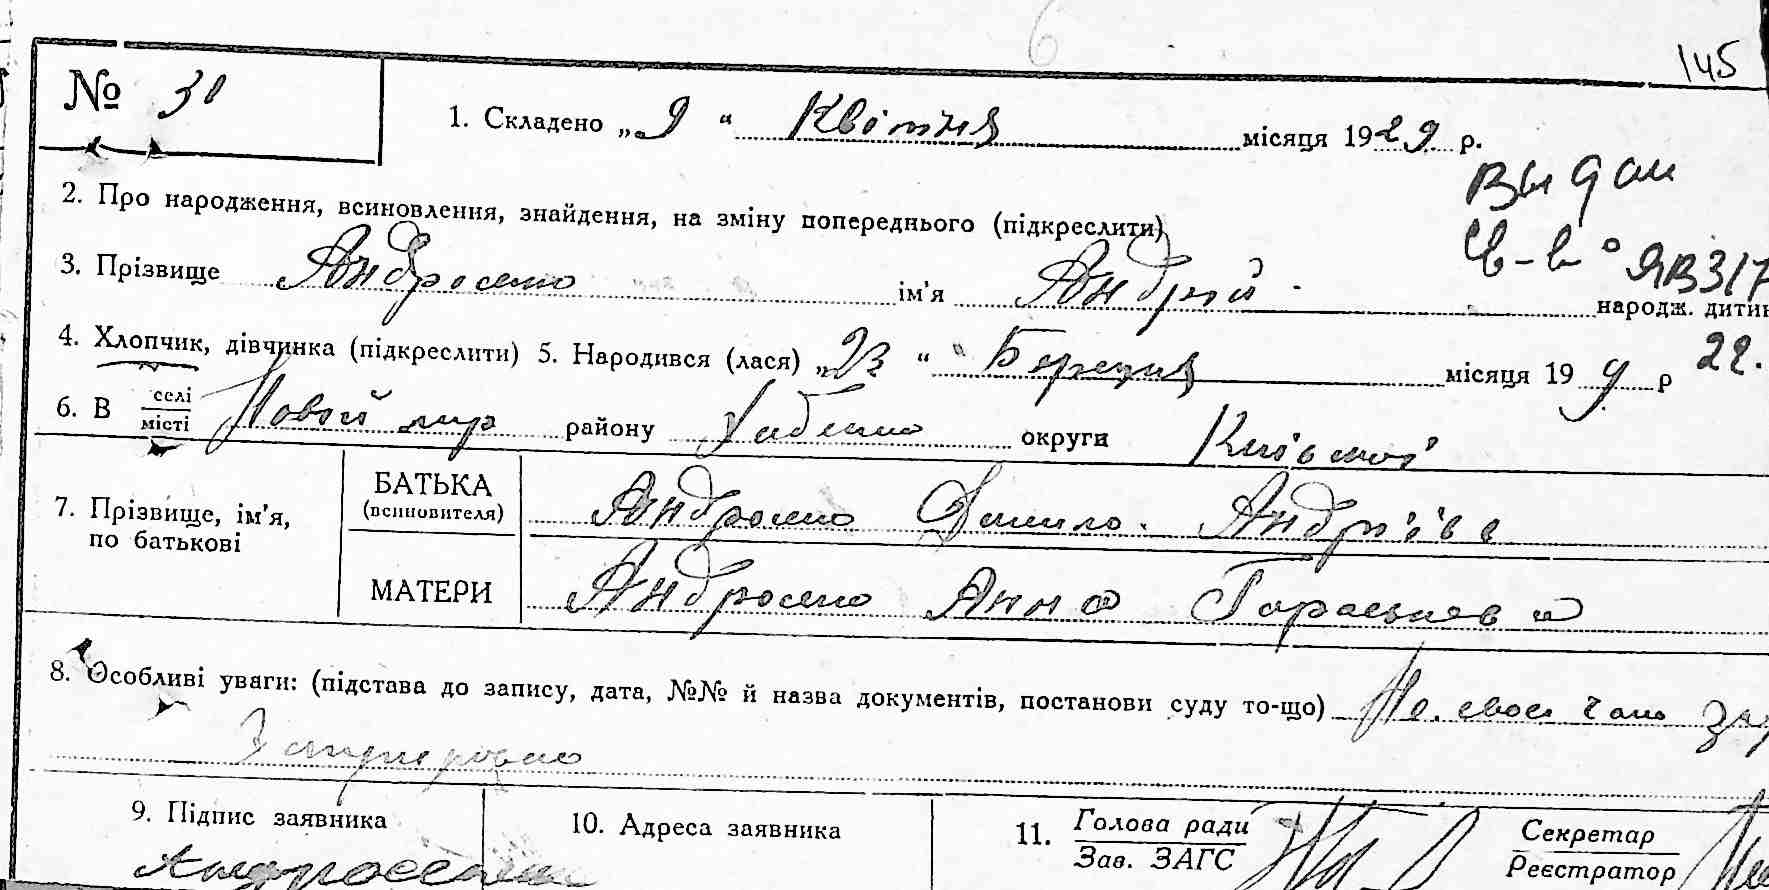 145
№ 30
1. Складено „ 9 “ Квітня місяця 1929 р.
2. Про народження, всиновлення, знайдення, на зміну попереднього (підкреслити)
Выдан
св-во ЯВ317
3. Прізвище Андросенко ім'я Андрій народж. дитин
4. Хлопчик, дівчинка (підкреслити) 5. Народився (лася) „ 23 “ Березня місяця 19 9 р
22.
6. В селі місті Новой мир району Хабенко округи Київської
7. Прізвище, ім'я, по батькові
БАТЬКА (всиновителя) Андросенко Данило Андріїв
МАТЕРИ Андросенко Анна Гарасимова
8. Особливі уваги: (підстава до запису, дата, №№ й назва документів, постанови суду то-що)
9. Підпис заявника
10. Адреса заявника
11. Голова ради
Зав. ЗАГС
Секретар
Реєстратор
Андросенко